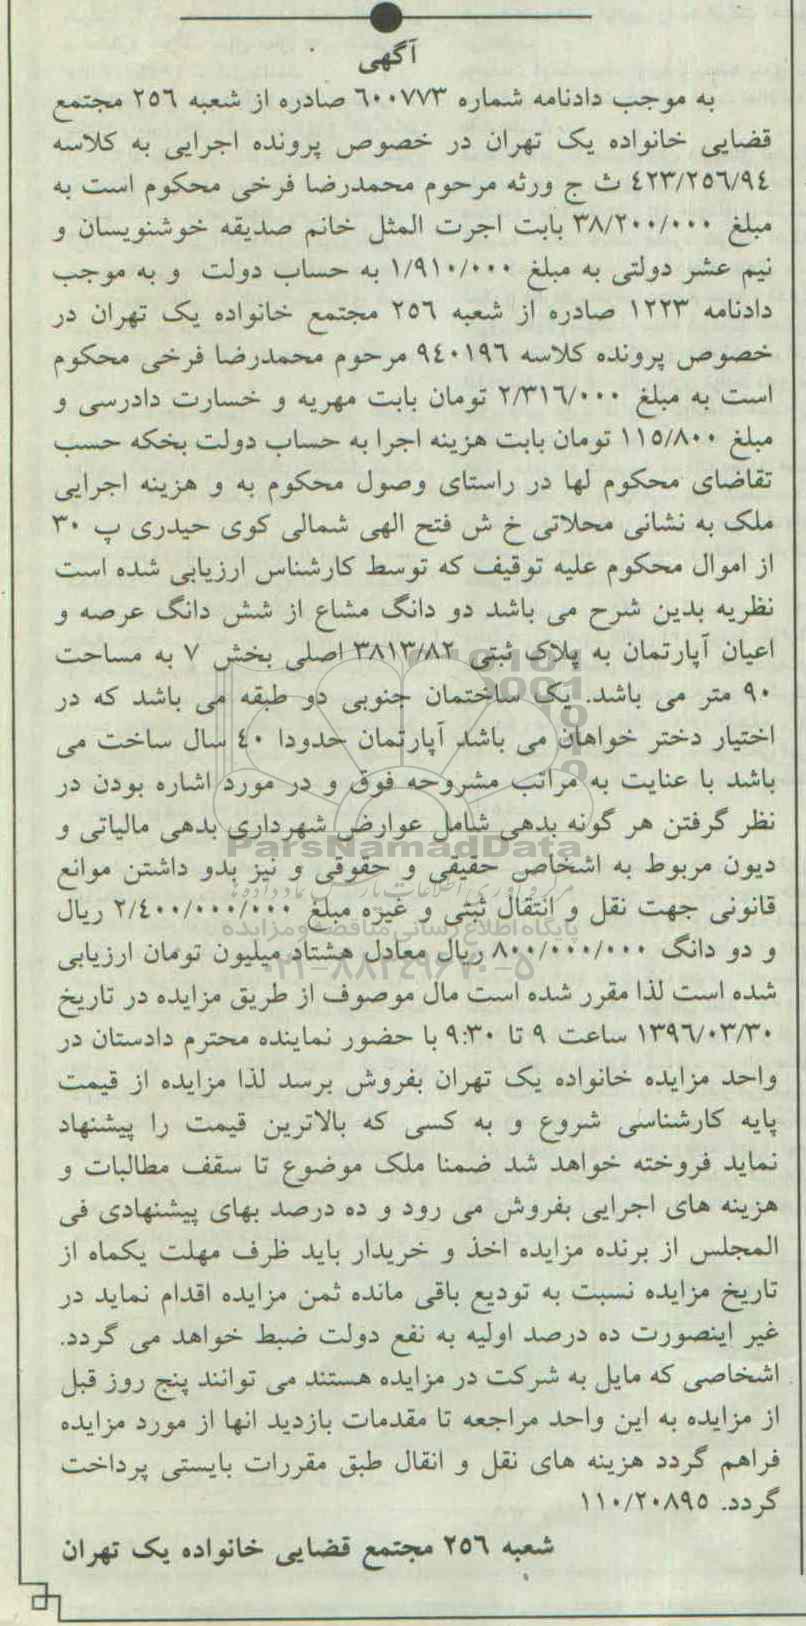 آگهی
به موجب دادنامه شماره ٦٠٠٧٧٣ صادره از شعبه ٢٥٦ مجتمع
قضایی خانواده یک تهران در خصوص پرونده اجرایی به کلاسه
٤٢٣/٢٥٦/٩٤ ث ج ورثه مرحوم محمدرضا فرخی محکوم است به
مبلغ ٣٨/٢٠٠/٠٠٠ بابت اجرت المثل خانم صدیقه خوشنویسان و
نیم عشر دولتی به مبلغ ١/٩١٠/٠٠٠ به حساب دولت و به موجب
دادنامه ١٢٢٣ صادره از شعبه ٢٥٦ مجتمع خانواده یک تهران در
خصوص پرونده کلاسه ٩٤٠١٩٦ مرحوم محمدرضا فرخی محکوم
است به مبلغ ٢/٣١٦/٠٠٠ تومان بابت مهریه و خسارت دادرسی و
مبلغ ١١٥/٨٠٠ تومان بابت هزینه اجرا به حساب دولت بخکه حسب
تقاضای محکوم لها در راستای وصول محکوم به و هزینه اجرایی
ملک به نشانی محلاتی خ ش فتح الهی شمالی کوی حیدری پ ٣٠
از اموال محکوم علیه توقیف که توسط کارشناس ارزیابی شده است
نظریه بدین شرح می باشد دو دانگ مشاع از شش دانگ عرصه و
اعیان آپارتمان به پلاک ثبتی ٣٨١٣/٨٢ اصلی بخش ٧ به مساحت
٩٠ متر می باشد. یک ساختمان جنوبی دو طبقه می باشد که در
اختیار دختر خواهان می باشد آپارتمان حدودا ٤٠ سال ساخت می
باشد با عنایت به مراتب مشروحه فوق و در مورد اشاره بودن در
نظر گرفتن هر گونه بدهی شامل عوارض شهرداری بدهی مالیاتی و
ParsNamadData
دیون مربوط به اشخاص حقیقی و حقوقی و نیز بدو داشتن موانع
قانونی جهت نقل و انتقال ثبتی و غیره مبلغ ٢/٤٠٠/٠٠٠/٠٠٠ ریال
پایگاه اطلاع رسانی مناقصه و مزایده
و دو دانگ ٨٠٠/٠٠٠/٠٠٠ ریال معادل هشتاد میلیون تومان ارزیابی
٠٢١-٨٨٣٤٩٦٧٠-٥
شده است لذا مقرر شده است مال موصوف از طریق مزایده در تاریخ
١٣٩٦/٠٣/٣٠ ساعت ٩ تا ٩:٣٠ با حضور نماینده محترم دادستان در
واحد مزایده خانواده یک تهران بفروش برسد لذا مزایده از قیمت
پایه کارشناسی شروع و به کسی که بالاترین قیمت را پیشنهاد
نماید فروخته خواهد شد ضمنا ملک موضوع تا سقف مطالبات و
هزینه های اجرایی بفروش می رود و ده درصد بهای پیشنهادی فی
المجلس از برنده مزایده اخذ و خریدار باید ظرف مهلت یکماه از
تاریخ مزایده نسبت به تودیع باقی مانده ثمن مزایده اقدام نماید در
غیر اینصورت ده درصد اولیه به نفع دولت ضبط خواهد می گردد.
اشخاصی که مایل به شرکت در مزایده هستند می توانند پنج روز قبل
از مزایده به این واحد مراجعه تا مقدمات بازدید انها از مورد مزایده
فراهم گردد هزینه های نقل و انقال طبق مقررات بایستی پرداخت
گردد. ١١٠/٢٠٨٩٥
شعبه ٢٥٦ مجتمع قضایی خانواده یک تهران